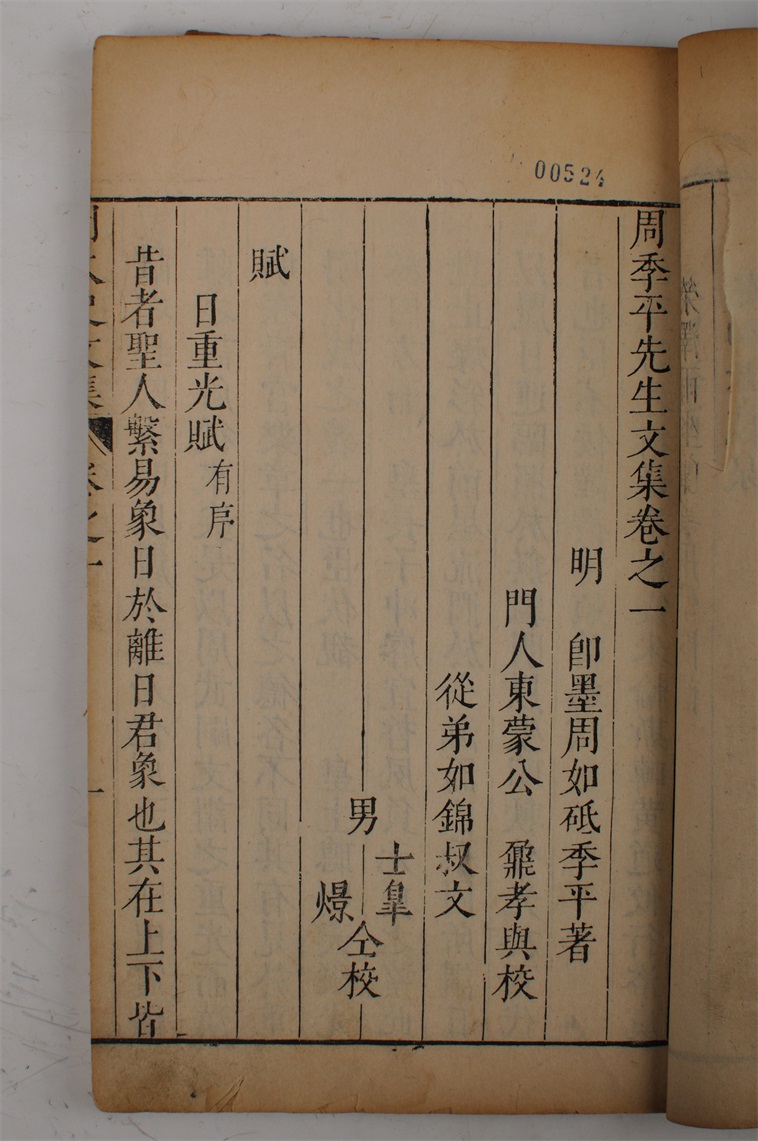 00524
周季平先生文集卷之一
明　即墨周如砥季平著
門人東蒙公　鼐孝與校
從弟如錦叔文
男　士皐　㬌　仝校
賦
日重光賦有序
昔者聖人繫易象日於離日君象也其在上下皆